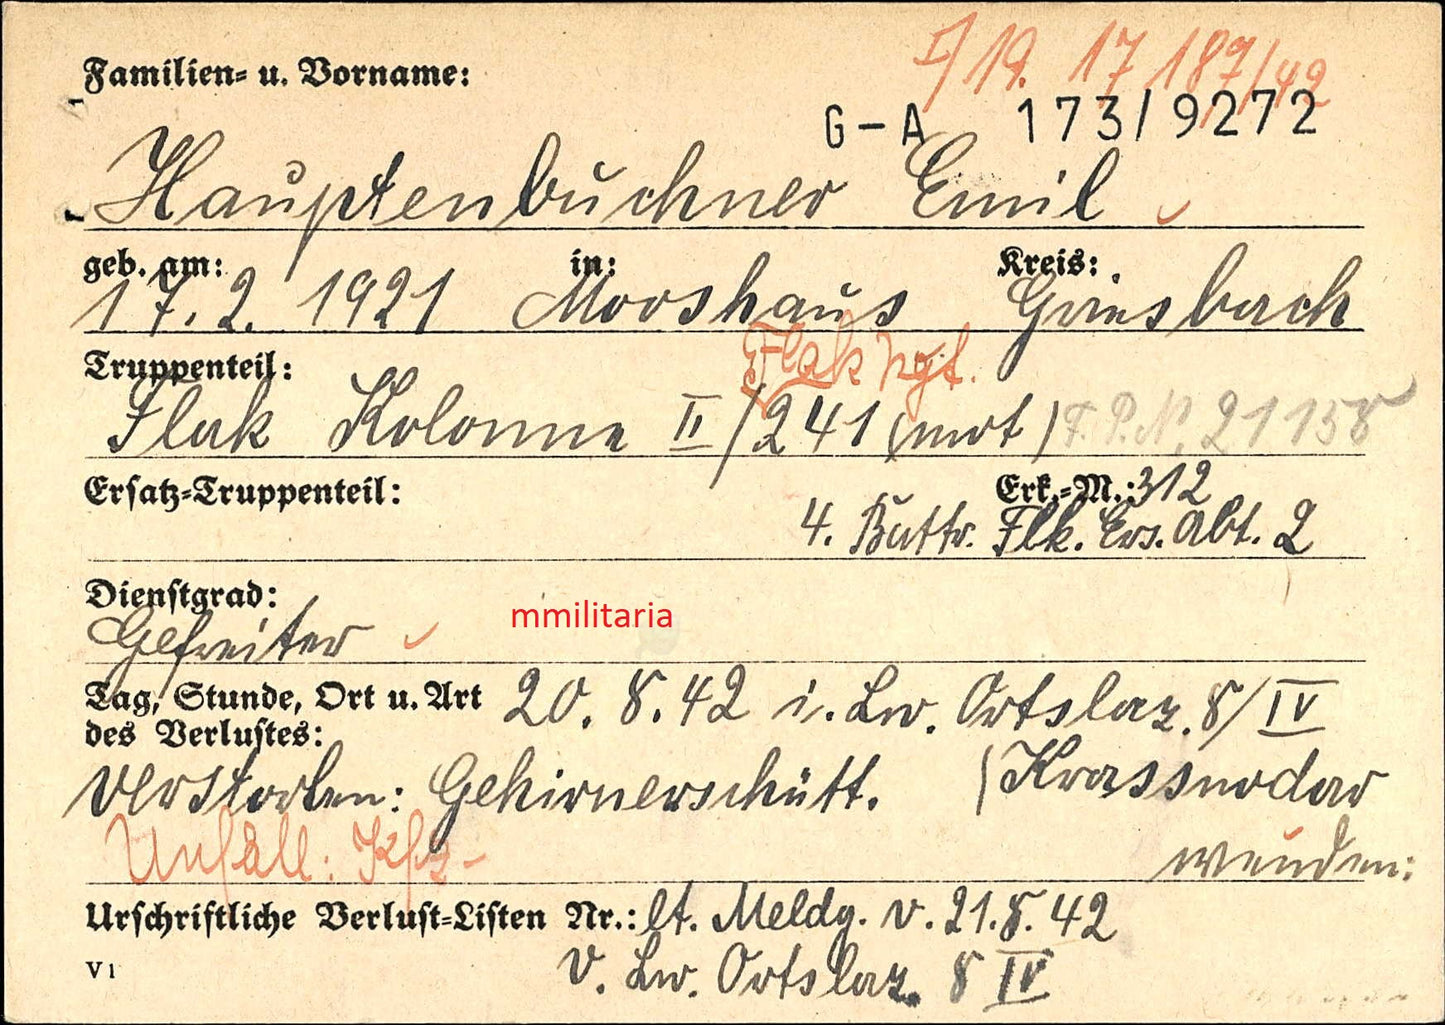 I/19. 17 187/42
Familien- u. Vorname:
G-A 173/9272
Hauptenbuchner Emil
geb. am: in: Kreis:
17.2.1921 Mooshaus Griesbach
Truppenteil: Flak Rgt.
Flak Kolonne II/241 (mot) F.P.N. 21158
Ersatz-Truppenteil: Erk.-M.: 312
4. Battr. Flk. Ers. Abt. 2
Dienstgrad:
mmilitaria
Gefreiter
Tag, Stunde, Ort u. Art 20.8.42 i. Lw. Ortslaz. 8/IV
des Verlustes:
verstorben: Gehirnerschütt. (Krassnodar
Unfall: Kfz-
wenden:
Urschriftliche Verlust-Listen Nr.: lt. Meldg. v. 21.8.42
V1 v. Lw. Ortslaz. 8 IV